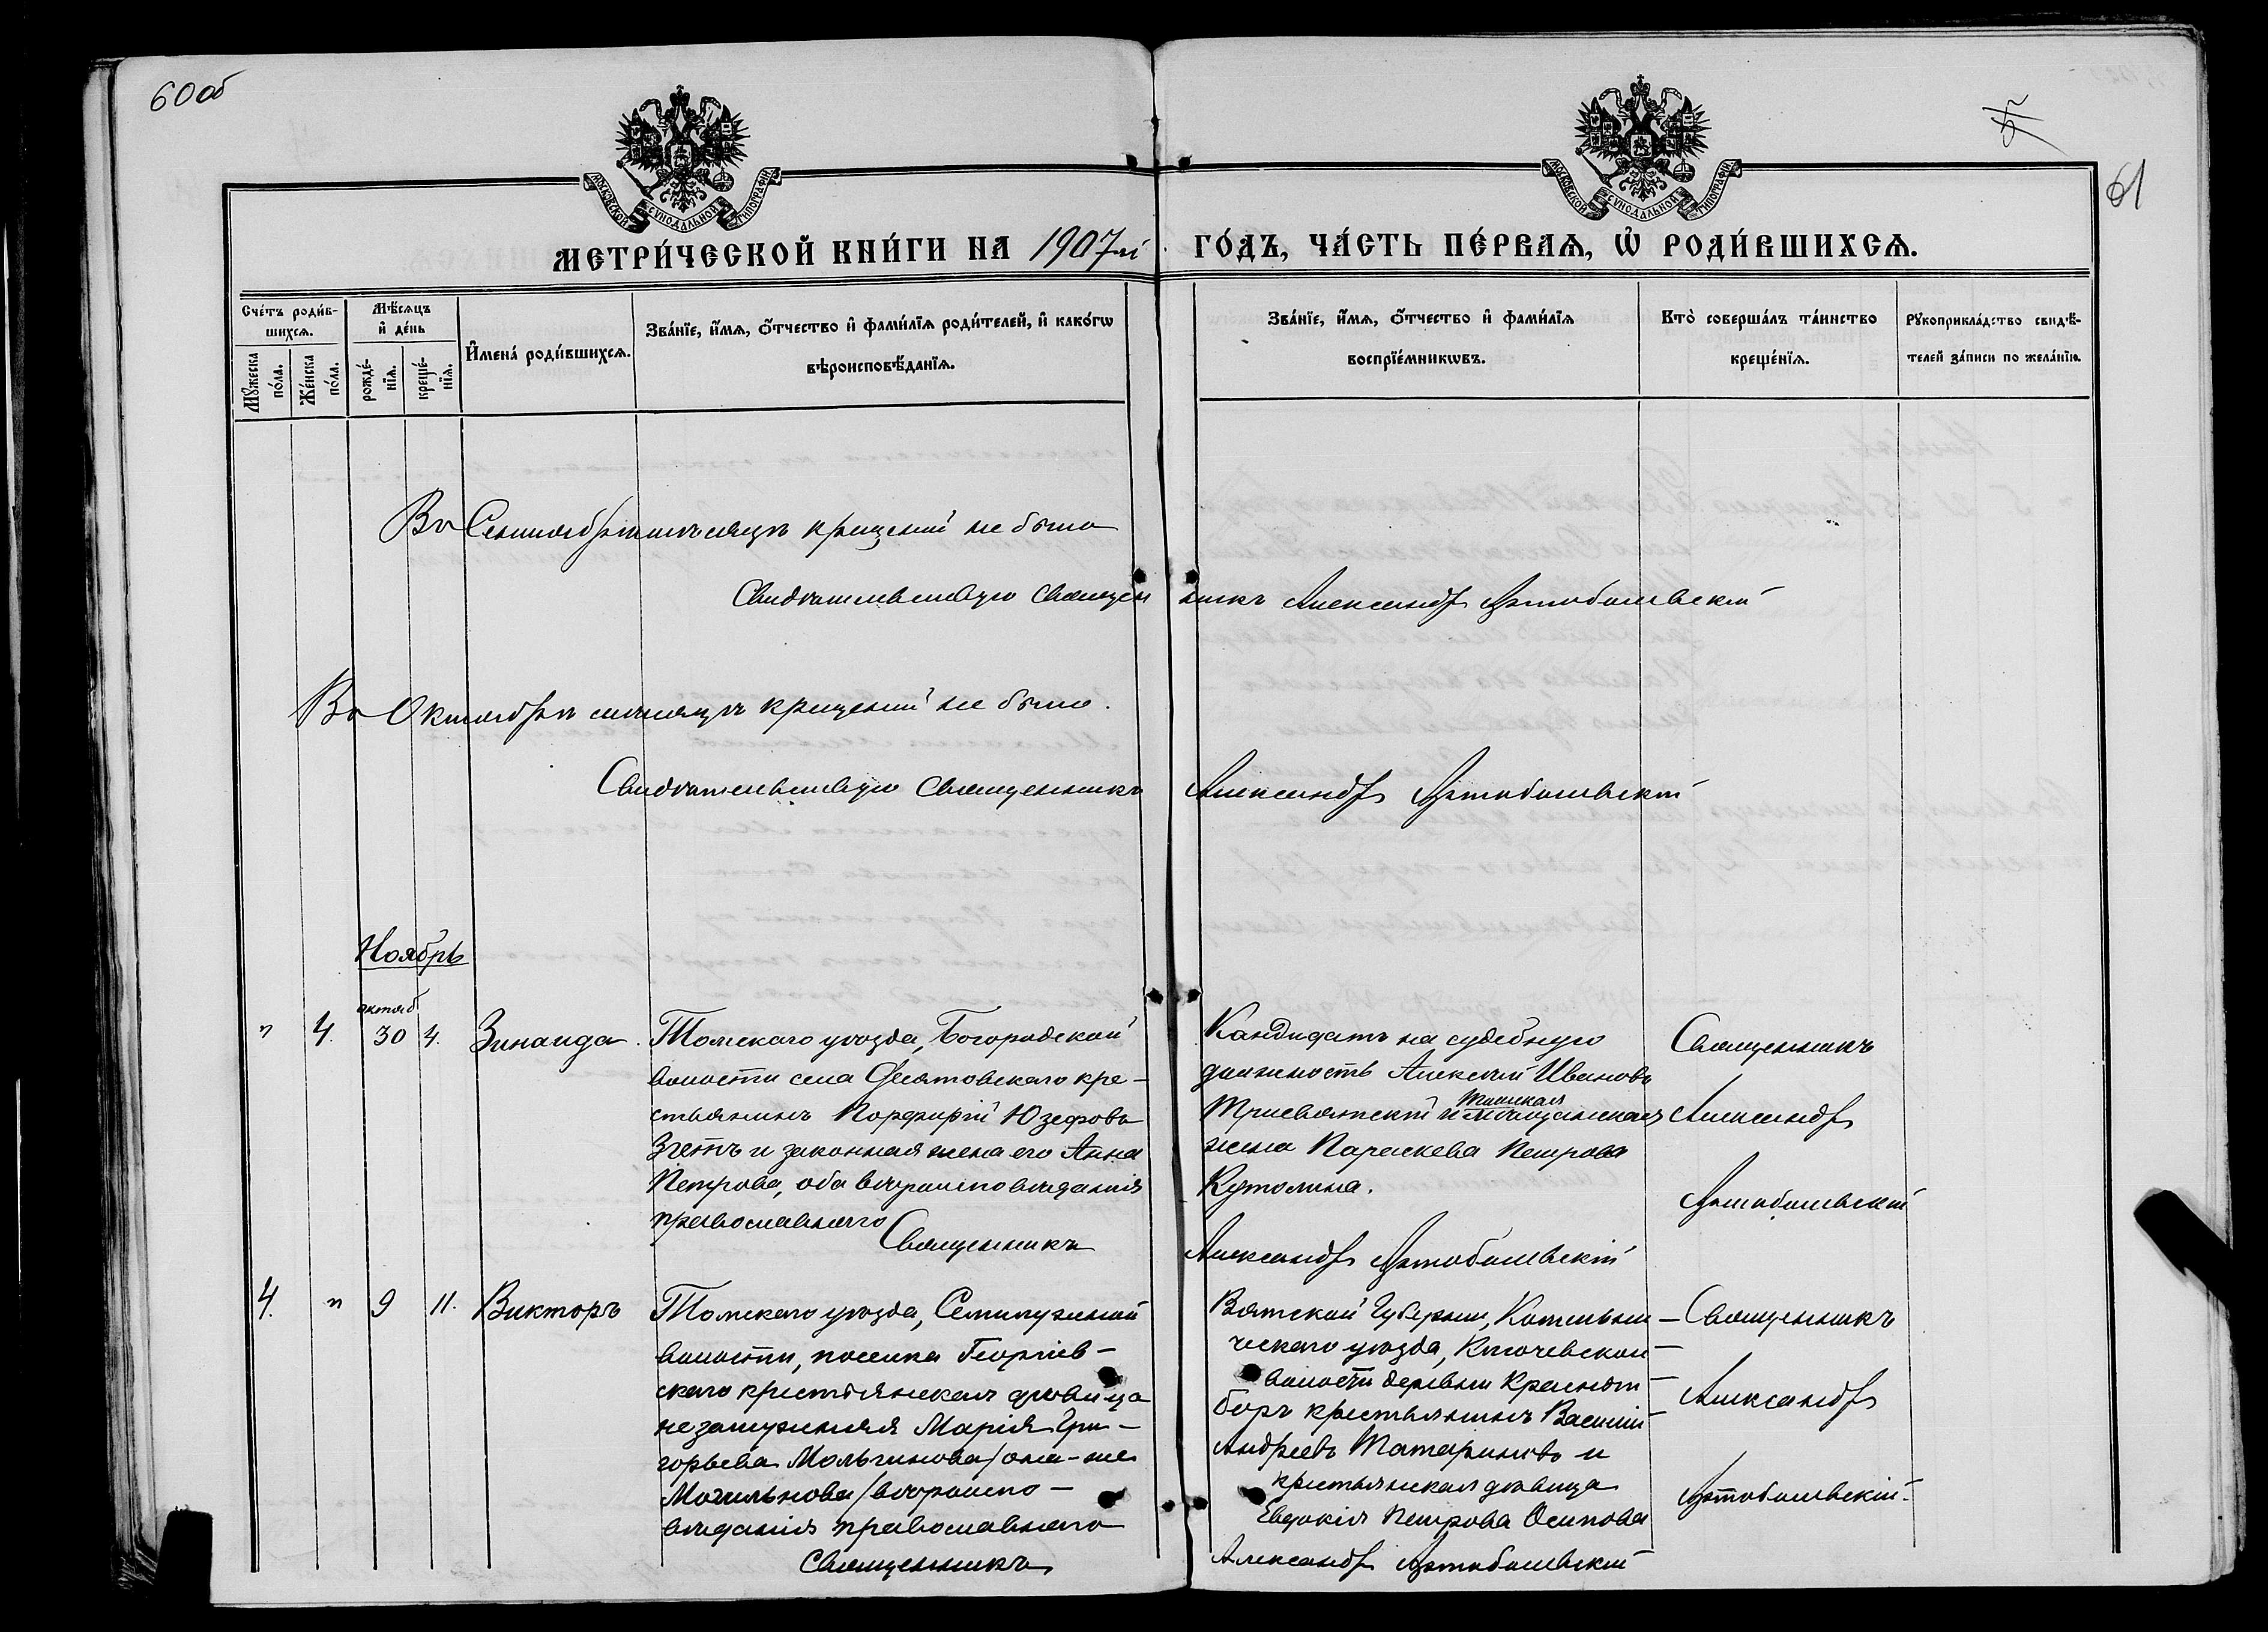 60об
61
МОСКОВСКОЙ СУНОДАЛЬНОЙ ТИПОГРАФІИ
МОСКОВСКОЙ СУНОДАЛЬНОЙ ТИПОГРАФІИ
МЕТРИ́ЧЕСКОЙ КНИ́ГИ НА 1907й ГО́ДЪ, ЧА́СТЬ ПЕ́РВАѦ, Ѡ҆ РОДИ́ВШИХСѦ.
Сче́тъ роди́в-
шихсѧ.
Мꙋ́жеска по́ла.
Же́нска по́ла.
Мѣ́сѧцъ
и҆ де́нь
рожде́-
нїѧ.
креще́-
нїѧ.
И҆мена̀ роди́вшихсѧ.
Зва́нїе, и҆́мѧ, ѻ҆́тчество и҆ фами́лїѧ роди́телей, и҆ како́гѡ
вѣроисповѣ́данїѧ.
Зва́нїе, и҆́мѧ, ѻ҆́тчество и҆ фами́лїѧ
воспрїе́мникѡвъ.
Кто̀ соверша́лъ та́инство
креще́нїѧ.
Рꙋкоприкла́дство свидѣ́-
телей за́писи по жела́нїю.
Въ Сентябрѣ мѣсяцѣ крещеній не было
Свидѣтельствую Священникъ Александръ Артоболевскій
Въ Октябрѣ мѣсяцѣ крещеній не было.
Свидѣтельствую Священникъ Александръ Артоболевскій
Ноябрь
октяб
" 4. 30 4. Зинаида.
Томскаго уѣзда, Богородской
волости села кре-
стьянинъ Порфирій Юзефовъ
и законная жена его Анна
Петрова, оба вѣроисповѣданія
православнаго
Священникъ
Кандидатъ на судебную
должность Алексѣй Ивановъ
Томская
Трисвятскій и мѣщанская
жена Параскева Петрова
Кутолина.
Александръ Артоболевскій
Священникъ
Александръ
Артоболевскій
4. " 9 11. Викторъ
Томскаго уѣзда, Семилужной
волости, поселка Георгіев-
скаго крестьянская дѣвица
незамужняя Марія Гри-
горьева Мольгинова/она-же
Могильнова/вѣроиспо-
вѣданія православнаго
Священникъ
Вятской Губерніи, Котельни-
ческаго уѣзда, Ключевской
волости деревни Красный
боръ крестьянинъ Василій
Андреевъ Татариновъ и
крестьянская дѣвица
Евдокія Петрова Осипова
Александръ Артоболевскій
Священникъ
Александръ
Артоболевскій.